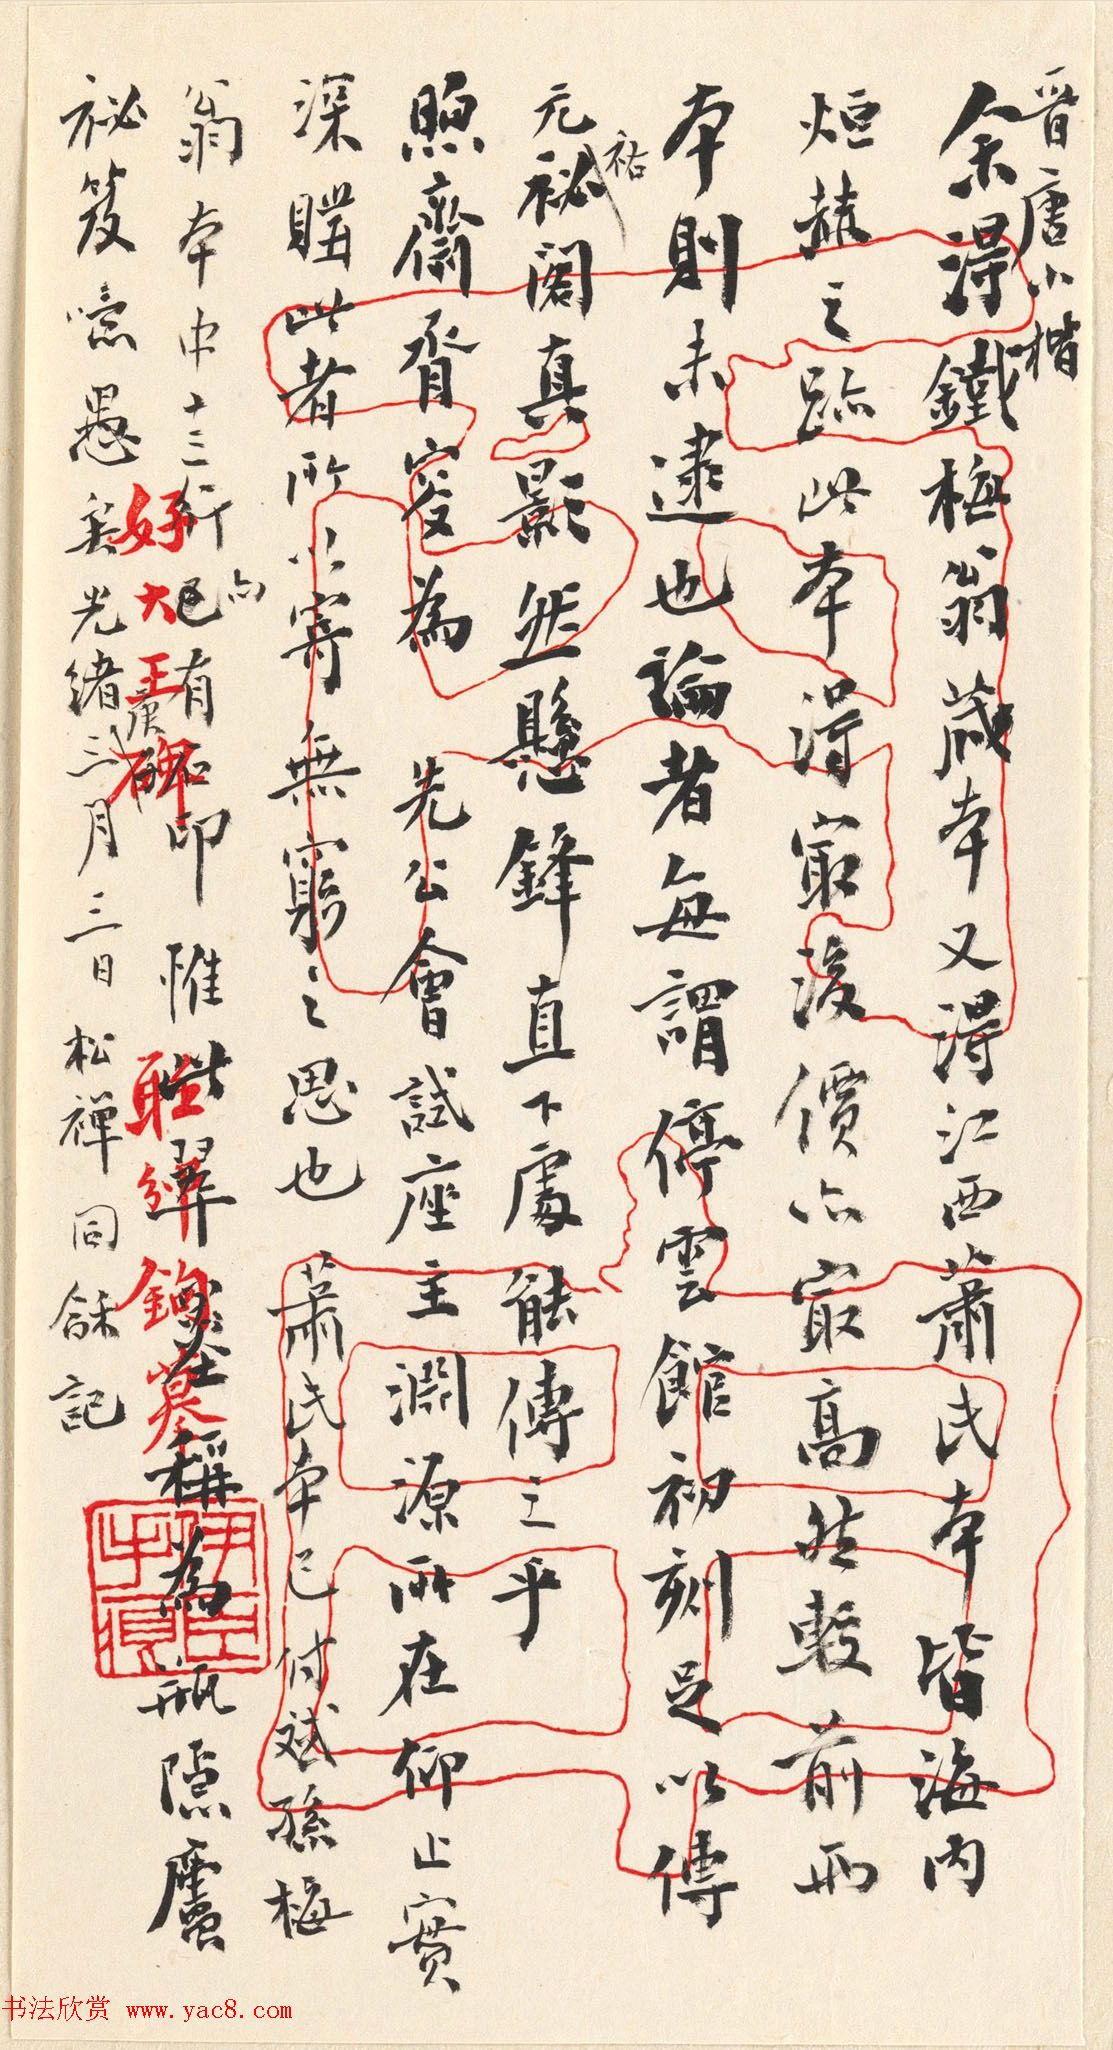 晉唐小楷
余得鐵梅翁藏本又得江西蕭氏本皆海內
烜赫之跡此本得最後價亦最高然較前兩
本則未逮也論者每謂停雲館初刻足以傳
元祕閣真影然懸鋒直下處能傳之乎
祐
煦齋胥安為 先公會試座主淵源所在仰止實
深購此者所以寄無窮之思也 蕭氏本已付斌孫梅
翁本中十三行已有石印惟此單 稱為瓶隱廬
亦
祕笈噫愚矣光緒 三月三日 松禪同龢記
庚
好大王碑
耻 鉤墓
书法欣赏 www.yac8.com